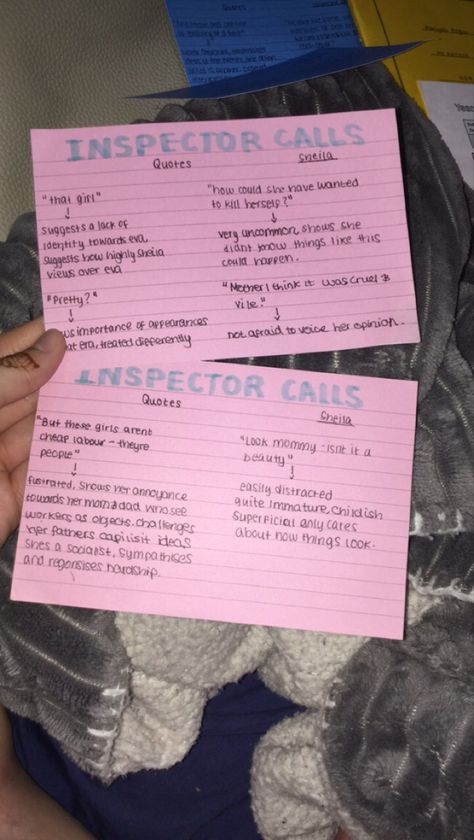 Quotes
INSPECTOR CALLS
Quotes
Sheila
"that girl"
suggests a lack of
identity towards eva.
suggests how highly Sheila
views over eva
"Pretty?"
importance of appearances
era, treated differently
"how could she have wanted
to kill herself?"
very uncommon, shows she
didnt know things like this
could happen.
"Mother I think it was cruel &
vile."
not afraid to voice her opinion.
INSPECTOR CALLS
Quotes
Sheila
"But these girls arent
cheap labour - theyre
people"
fustrated, shows her annoyance
towards her mom & dad who see
workers as objects. challenges
her fathers capilisit ideas
shes a socialist, sympathises
and regonsises hardship.
"Look mommy - isnt it a
beauty"
easily distracted
quite immature, childish
superficial only cares
about how things look.